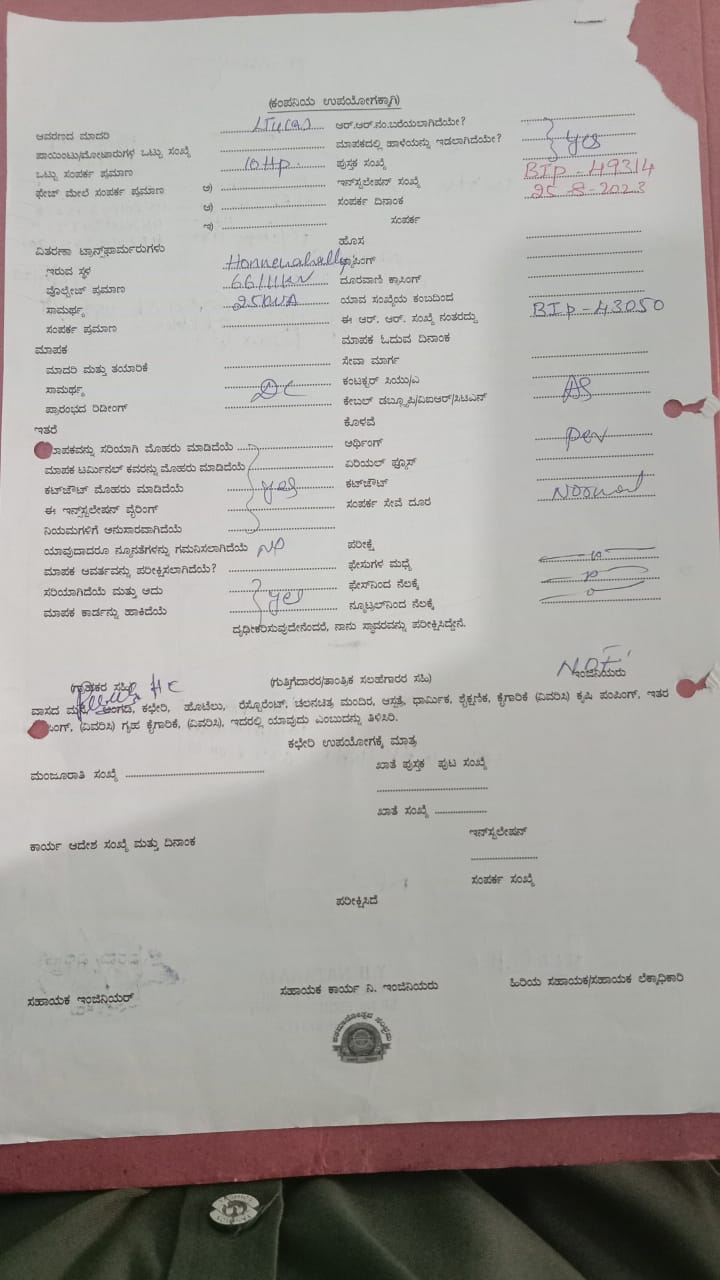 (ಕಂಪನಿಯ ಉಪಯೋಗಕ್ಕಾಗಿ)
ಆವರಣದ ಮಾದರಿ ಆರ್.ಆರ್.ನಂ.ಬರೆಯಲಾಗಿದೆಯೇ?
ಪಾಯಿಂಟು/ಮೋಟಾರುಗಳ ಒಟ್ಟು ಸಂಖ್ಯೆ ಮಾಪಕದಲ್ಲಿ ಹಾಳೆಯನ್ನು ಇಡಲಾಗಿದೆಯೇ? yes
ಒಟ್ಟು ಸಂಪರ್ಕ ಪ್ರಮಾಣ 10Hp. ಪುಸ್ತಕ ಸಂಖ್ಯೆ
ಫೇಜ್ ಮೇಲೆ ಸಂಪರ್ಕ ಪ್ರಮಾಣ ಅ) ಇನ್‌ಸ್ಟಲೇಷನ್ ಸಂಖ್ಯೆ BIP-49314
ಆ) ಸಂಪರ್ಕ ದಿನಾಂಕ 25-8-2023
ಇ) ಸಂಪರ್ಕ
ವಿತರಣಾ ಟ್ರಾನ್ಸ್‌ಫಾರ್ಮರುಗಳು ಹೊಸ
ಇರುವ ಸ್ಥಳ Honnenahally ಕ್ರಾಸಿಂಗ್
ವೊಲ್ಟೇಜ್ ಪ್ರಮಾಣ 66/11KV ದೂರವಾಣಿ ಕ್ರಾಸಿಂಗ್
ಸಾಮರ್ಥ್ಯ 25KVA ಯಾವ ಸಂಖ್ಯೆಯ ಕಂಬದಿಂದ
ಸಂಪರ್ಕ ಪ್ರಮಾಣ ಈ ಆರ್. ಆರ್. ಸಂಖ್ಯೆ ನಂತರದ್ದು BIP-43050
ಮಾಪಕ ಮಾಪಕ ಓದುವ ದಿನಾಂಕ
ಮಾದರಿ ಮತ್ತು ತಯಾರಿಕೆ ಸೇವಾ ಮಾರ್ಗ
ಸಾಮರ್ಥ್ಯ DC ಕಂಟಕ್ಟರ್ ಸಿಯು/ಎ
ಪ್ರಾರಂಭದ ರಿಡೀಂಗ್ ಕೇಬಲ್ ಡಬ್ಲ್ಯೂಪಿ/ವಿಐಆರ್/ಸಿಟಿಎನ್ AS
ಇತರೆ ಕೊಳವೆ
ಮಾಪಕವನ್ನು ಸರಿಯಾಗಿ ಮೊಹರು ಮಾಡಿದೆಯೆ ಆರ್ಥಿಂಗ್
ಮಾಪಕ ಟರ್ಮಿನಲ್ ಕವರನ್ನು ಮೊಹರು ಮಾಡಿದೆಯೆ ಏರಿಯಲ್ ಫ್ಯೂಸ್
ಕಟ್‌ಔಟ್ ಮೊಹರು ಮಾಡಿದೆಯೆ yes ಕಟ್‌ಔಟ್
ಈ ಇನ್‌ಸ್ಟಲೇಷನ್ ವೈರಿಂಗ್ ಸಂಪರ್ಕ ಸೇವೆ ದೂರ
ನಿಯಮಗಳಿಗೆ ಅನುಸಾರವಾಗಿದೆಯೆ
ಯಾವುದಾದರೂ ನ್ಯೂನತೆಗಳನ್ನು ಗಮನಿಸಲಾಗಿದೆಯೆ NO ಪರೀಕ್ಷೆ
ಮಾಪಕ ಆವರ್ತವನ್ನು ಪರೀಕ್ಷಿಸಲಾಗಿದೆಯೆ? ಫೇಸುಗಳ ಮಧ್ಯೆ
ಸರಿಯಾಗಿದೆಯೆ ಮತ್ತು ಅದು yes ಫೇಸ್‌ನಿಂದ ನೆಲಕ್ಕೆ
ಮಾಪಕ ಕಾರ್ಡನ್ನು ಹಾಕಿದೆಯೆ ನ್ಯೂಟ್ರಲ್‌ನಿಂದ ನೆಲಕ್ಕೆ
ದೃಢೀಕರಿಸುವುದೇನೆಂದರೆ, ನಾನು ಸ್ಥಾವರವನ್ನು ಪರೀಕ್ಷಿಸಿದ್ದೇನೆ.
(ಗ್ರಾಹಕರ ಸಹಿ) (ಗುತ್ತಿಗೆದಾರರ/ತಾಂತ್ರಿಕ ಸಲಹೆಗಾರರ ಸಹಿ) ಇಂಜಿನಿಯರು
ವಾಸದ ಮನೆ, ಅಂಗಡಿ, ಕಛೇರಿ, ಹೊಟೆಲು, ರೆಸ್ಟೋರೆಂಟ್, ಚಲನಚಿತ್ರ ಮಂದಿರ, ಆಸ್ಪತ್ರೆ, ಧಾರ್ಮಿಕ, ಶೈಕ್ಷಣಿಕ, ಕೈಗಾರಿಕೆ (ವಿವರಿಸಿ) ಕೃಷಿ ಪಂಪಿಂಗ್, ಇತರ
ಪಂಪಿಂಗ್, (ವಿವರಿಸಿ) ಗೃಹ ಕೈಗಾರಿಕೆ, (ವಿವರಿಸಿ), ಇದರಲ್ಲಿ ಯಾವುದು ಎಂಬುದನ್ನು ತಿಳಿಸಿರಿ.
ಕಛೇರಿ ಉಪಯೋಗಕ್ಕೆ ಮಾತ್ರ
ಮಂಜೂರಾತಿ ಸಂಖ್ಯೆ ಖಾತೆ ಪುಸ್ತಕ ಪುಟ ಸಂಖ್ಯೆ
ಖಾತೆ ಸಂಖ್ಯೆ
ಕಾರ್ಯ ಆದೇಶ ಸಂಖ್ಯೆ ಮತ್ತು ದಿನಾಂಕ ಇನ್‌ಸ್ಟಲೇಷನ್
ಸಂಪರ್ಕ ಸಂಖ್ಯೆ
ಪರೀಕ್ಷಿಸಿದೆ
ಸಹಾಯಕ ಇಂಜಿನಿಯರ್ ಸಹಾಯಕ ಕಾರ್ಯ ನಿ. ಇಂಜಿನಿಯರು ಹಿರಿಯ ಸಹಾಯಕ/ಸಹಾಯಕ ಲೆಕ್ಕಾಧಿಕಾರಿ